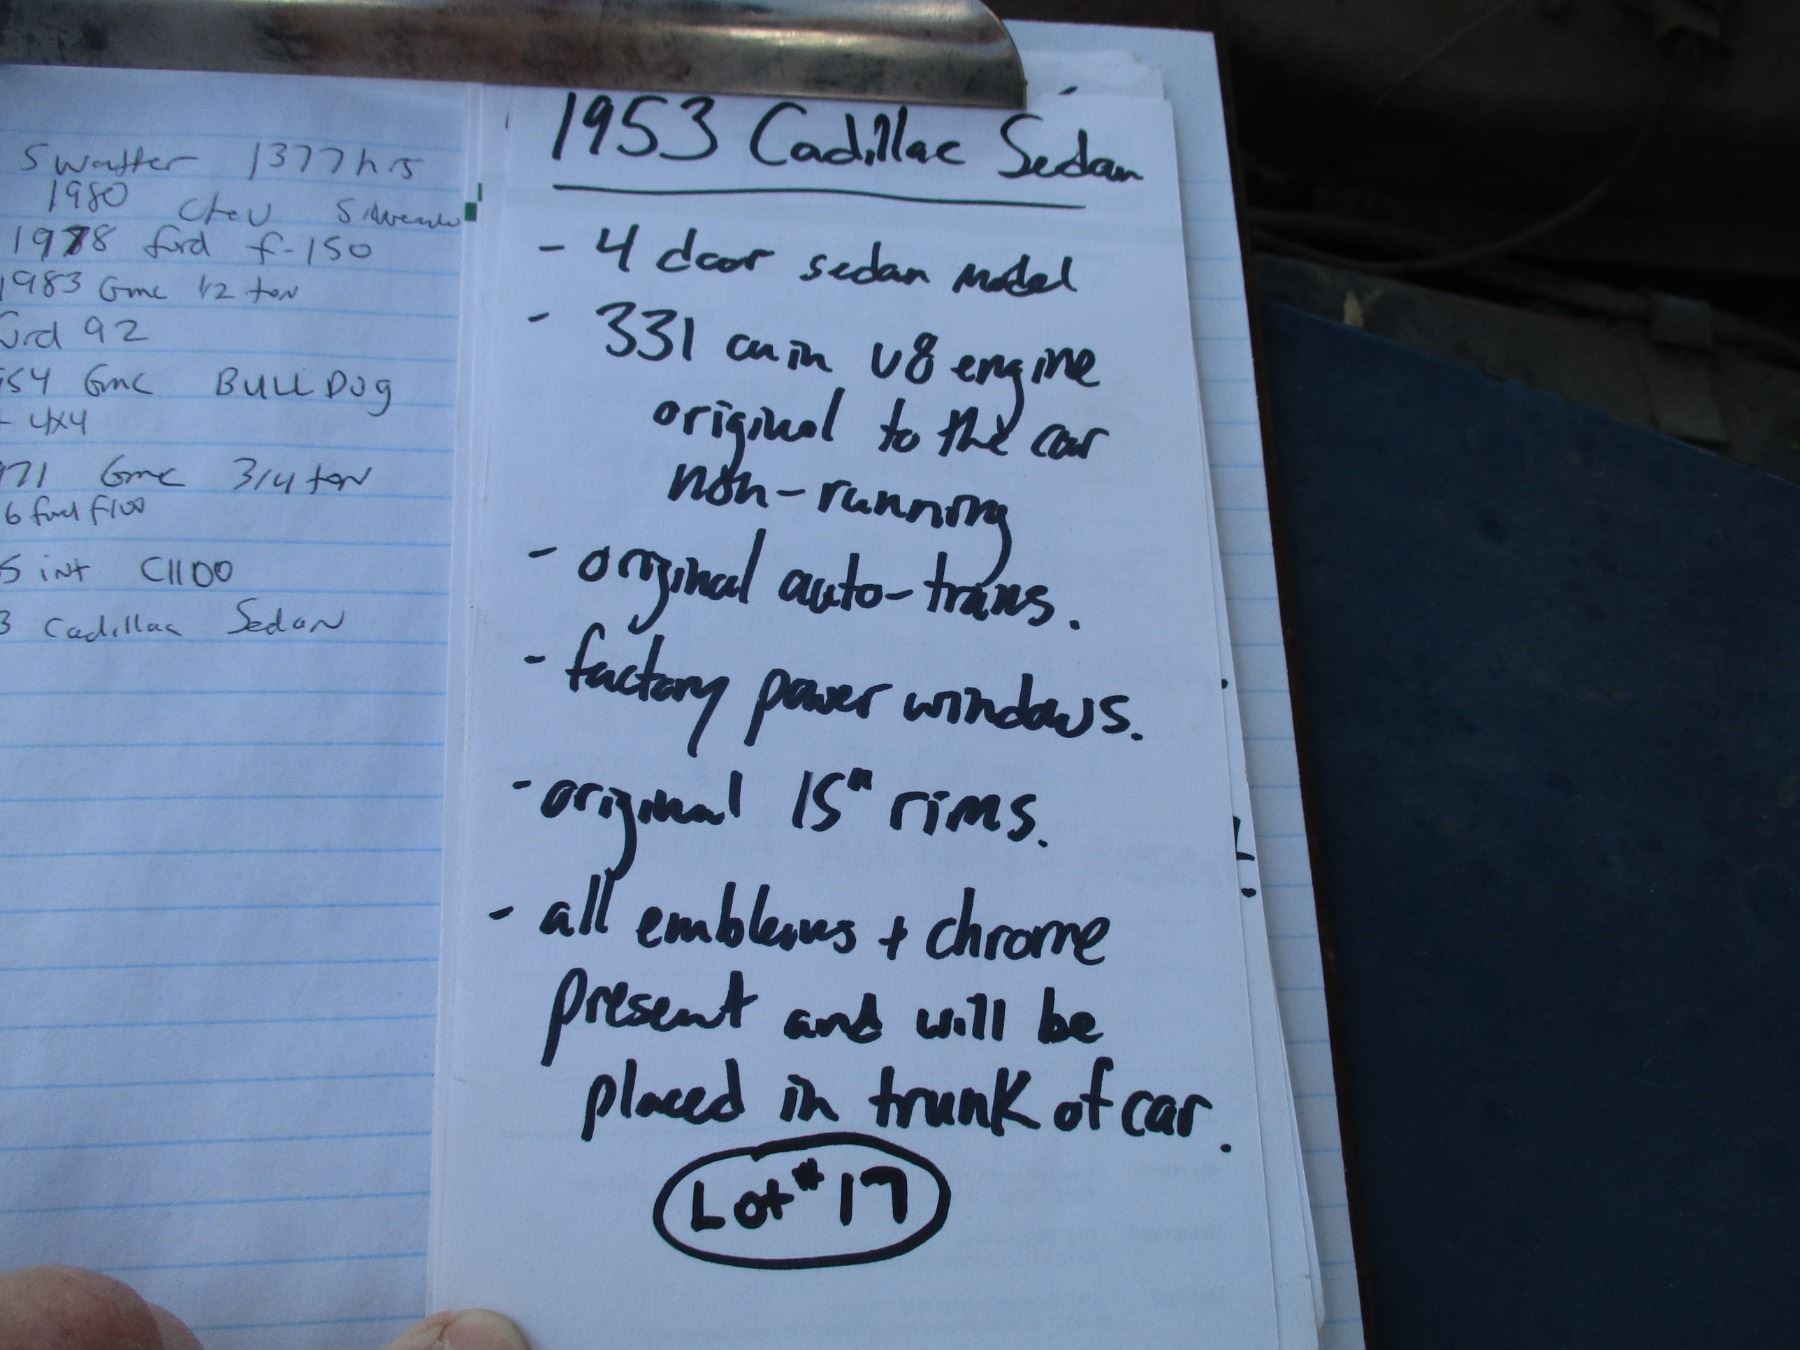 Swatter 1377 hrs
1980 chev Silverado
1978 ford f-150
1983 Gmc 1/2 ton
ord 92
54 Gmc BULLDog
4x4
71 Gmc 3/4 ton
6 ford f100
5 int C1100
3 Cadillac Sedan
1953 Cadillac Sedan
- 4 door sedan model
- 331 cu in V8 engine
original to the car
non-running
- original auto-trans.
- factory power windows.
- original 15" rims.
- all emblems + chrome
present and will be
placed in trunk of car.
Lot # 17